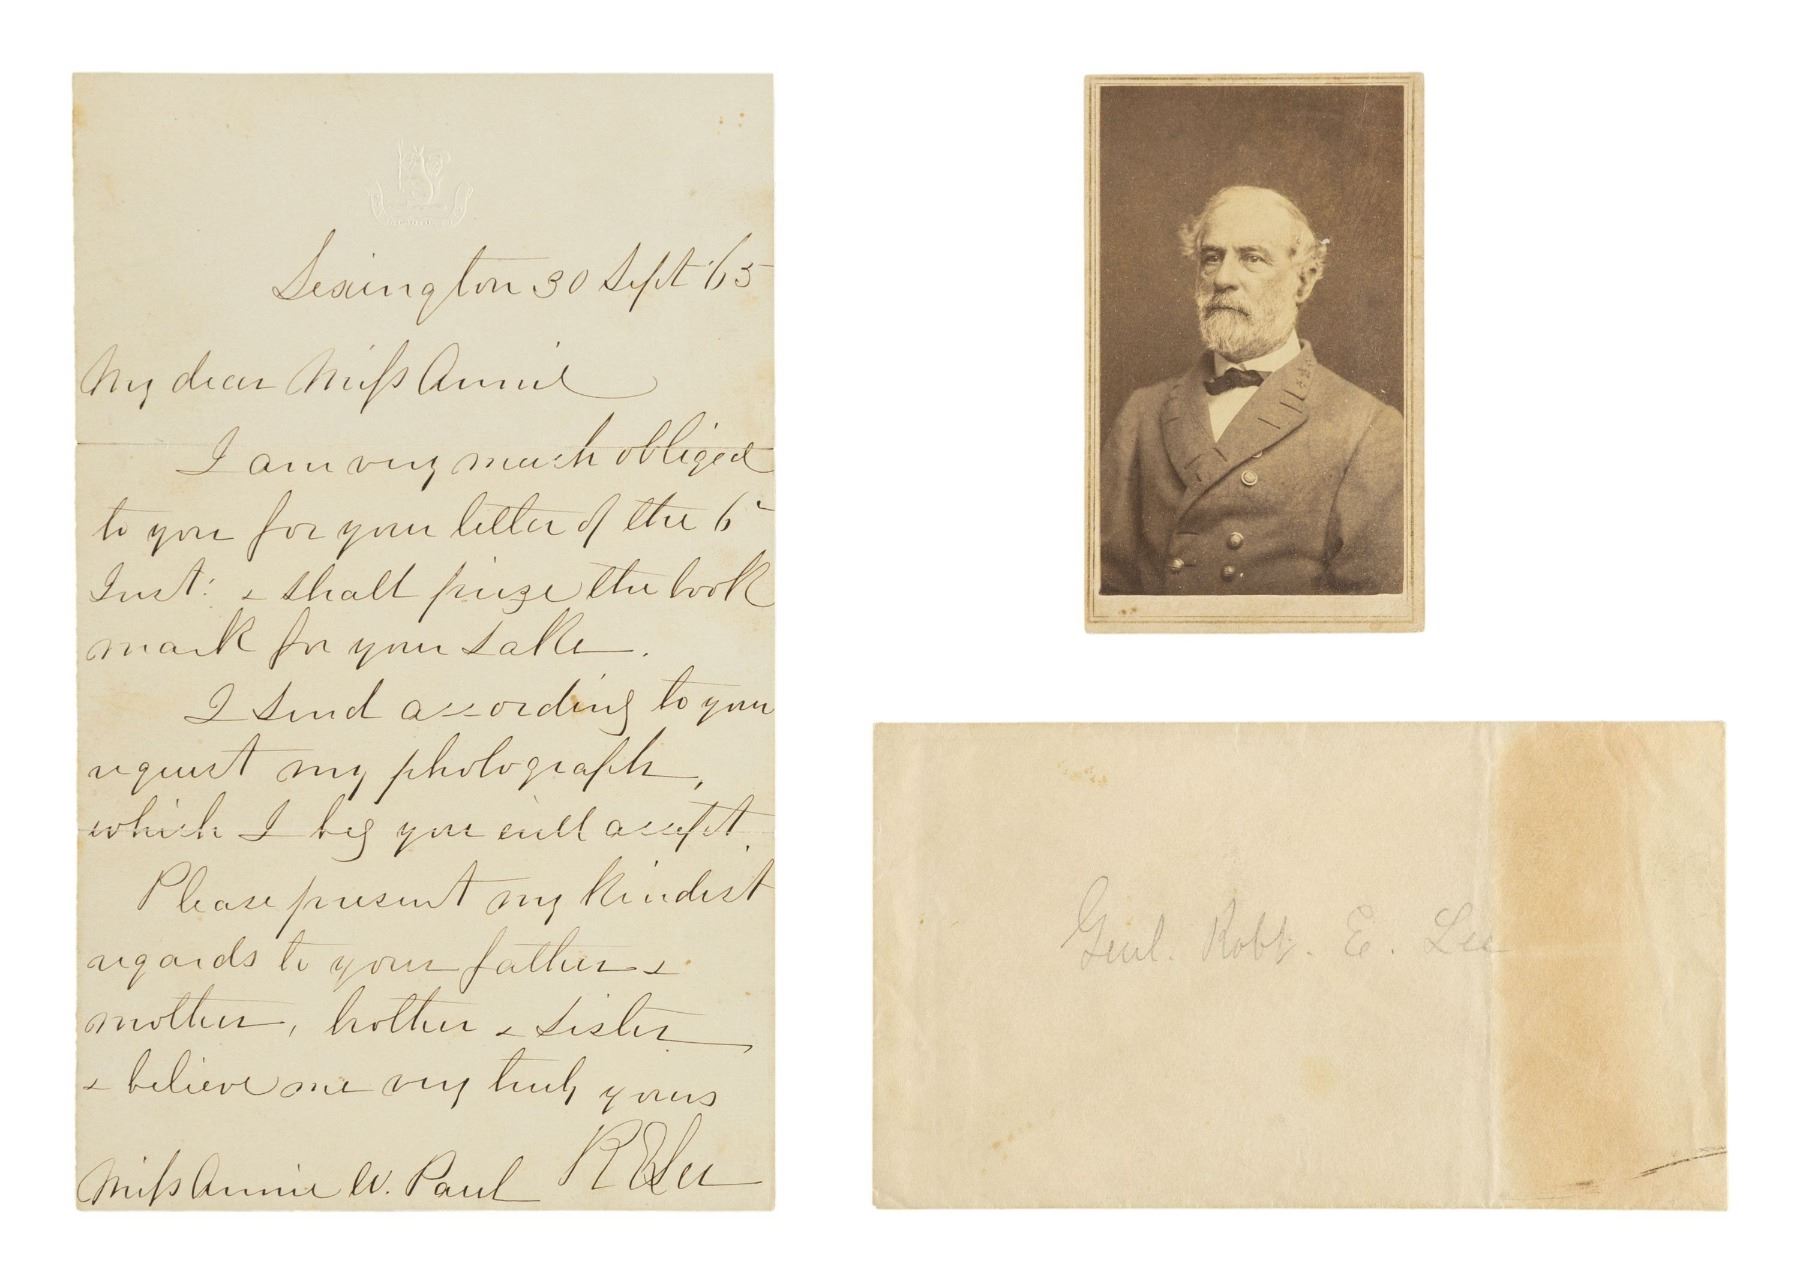 Lexington 30 Sept '65
My dear Miss Annie
I am very much obliged
to you for your letter of the 6
Inst: & shall prize the book
mark for your sake.
I send according to your
request my photograph,
which I beg you will accept.
Please present my kindest
regards to your father &
mother, brother & sister
& believe me very truly yours
R E Lee
Miss Annie W. Paul
Genl. Robt. E. Lee